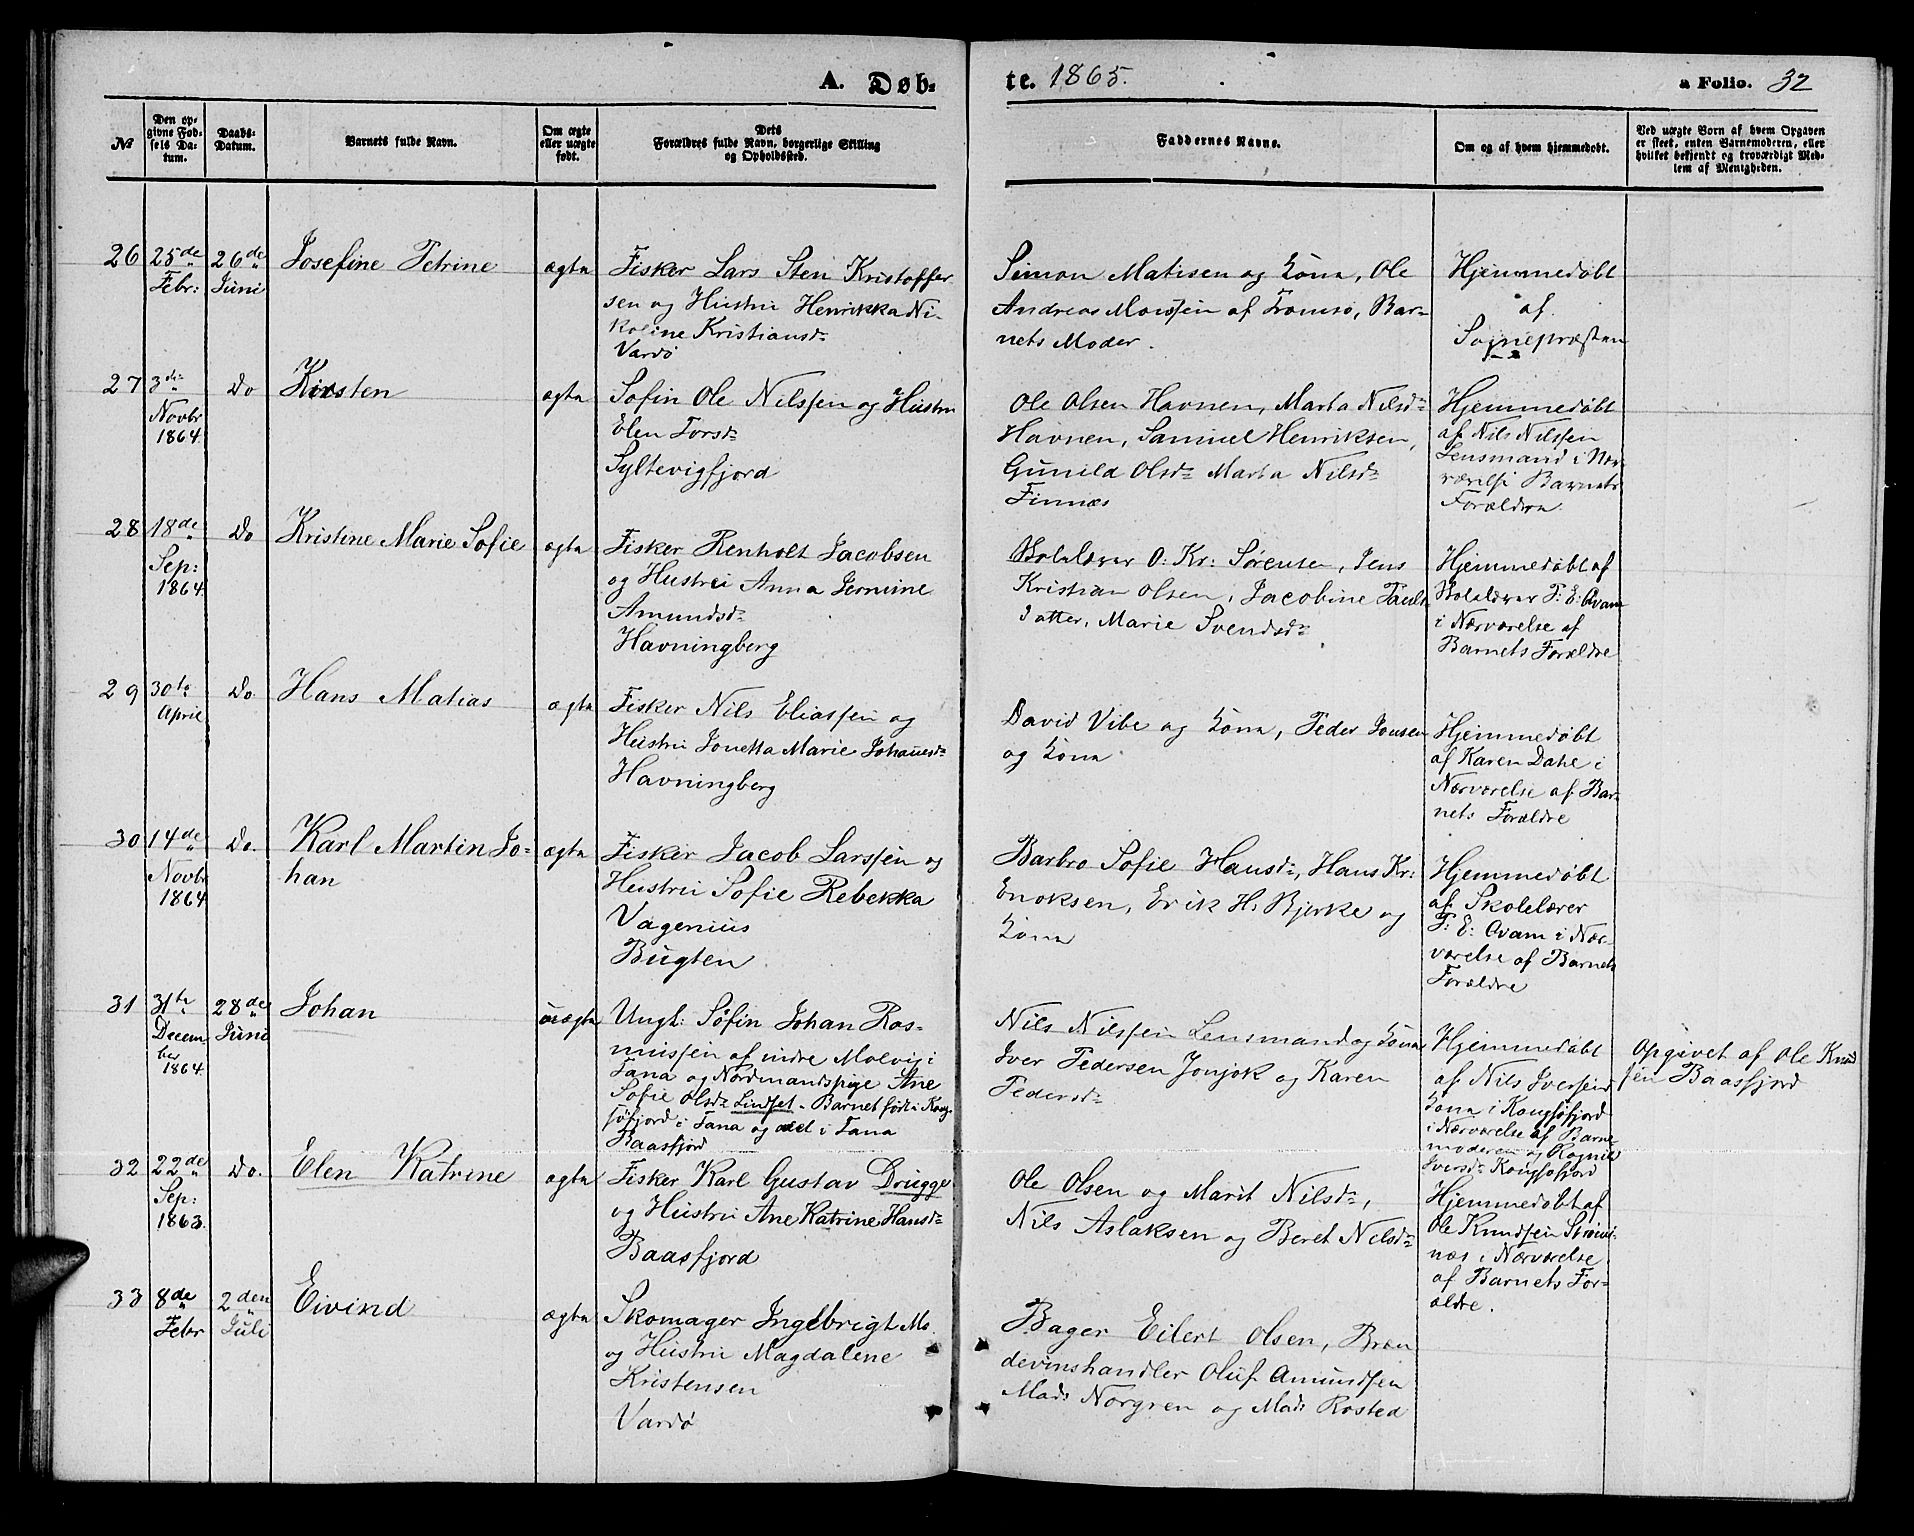 A. Døb-
te. 1865.
a Folio. 32
No
Den op-
givne Fød-
sels Da-
tum.
Daabs-
Datum.
Barnets fulde Navn.
Om ægte
eller uægte
født.
Dets
Forældres fulde Navn, borgerlige Stilling
og Opholdssted.
Faddernes Navne.
Om og af hvem hjemmedøbt.
Ved uægte Børn af hvem Opgaven
er skeet, enten Barnemoderen, eller
hvilket bekjendt og troværdigt Med-
lem af Menigheden.
26
25de
Febr:
26de
Juni
Josefine Petrine
ægte
Fisker Lars Sten Kristoffer
sen og Hustru Henrikka Ni-
koline Kristiansd:
Vardø
Simon Matisen og Kone, Ole
Andreas Monssen af Tromsø, Bar-
nets Moder.
Hjemmedøbt
af
Sognepræsten
27
3die
Novbr
1864
Do
Kirsten
ægte
Søfin Ole Nilssen og Hustru
Elen Torsd:
Syltevigfjord
Ole Olsen Havnen, Marta Nilsd:
Havnen, Samuel Henriksen,
Gunild Olsd: Marta Nilsd:
Finnæs
Hjemmedøbt
af Nils Nilssen
Lensmand i Nær-
værelse Barnets
Forældre
28
18de
Sep:
1864
Do
Kristine Marie Sofie
ægte
Fisker Renholt Jacobsen
og Hustru Anna Jernine
Amundsd:
Havningberg
Skolelærer O. Kr: Sørensen, Jens
Kristian Olsen, Jacobine Pauls
datter, Marie Svendsd:
Hjemmedøbt af
Skolelærer P. E: Qvam
i Nærværelse af
Barnets Forældre
29
30te
April
Do.
Hans Matias
ægte
Fisker Nils Eliassen og
Hustru Jonetta Marie Johannesd:
Havningberg
David Vibe og Kone, Peder Jonsen
og Kone
Hjemmedøbt
af Karen Dahl i
Nærværelse af Bar-
nets Forældre
30
14de
Novbr
1864
Do.
Karl Martin Jo-
han
ægte
Fisker Jacob Larssen og
Hustru Sofie Rebekka
Vagenius
Bugten
Barbro Sofie Hansd:, Hans Kr:
Enoksen, Erik H. Bjerke og
Kone
Hjemmedøbt
af Skolelærer
P. E: Qvam i Nær-
værelse af Barnets
Forældre
31
31te
Decem
ber
1864.
28de
Juni
Johan
uægte
Ungk: Søfin Johan Ras-
mussen af indre Molvig i
Tana og Nordmandspige Ane
Sofie Olsd: Lindset. Barnet født i Kong-
søfjord i Tana og avlet i Tana
Baasfjord
Nils Nilssen Lensmand og Kone
Iver Pedersen Jonjok og Karen
Pedersd:
Hjemmedøbt
af Nils Iversens
Kone i Kongsøfjord
i Nærværelse af Barne
moderen og Ragnil
Iversd: Kongsøfjord
Opgivet af Ole Knud
sen Baasfjord
32
22de
Sep:
1863.
Do.
Elen Katrine
ægte
Fisker Karl Gustav Drugge
og Hustru Ane Katrine Hansd:
Baasfjord
Ole Olsen og Marit Nilsd:,
Nils Aslaksen og Beret Nilsd:
Hjemmedøbt af
Ole Knudsen Strøm-
næs i Nærværelse
af Barnets For-
ældre.
33
8de
Febr
2den
Juli
Eivind
ægte
Skomager Ingebrigt Mo
og Hustru Magdalene
Kristensen
Vardø
Bager Eilert Olsen, Bræn
devinshandler Oluf Amundsen
Mads Norgren og Mads Rosted